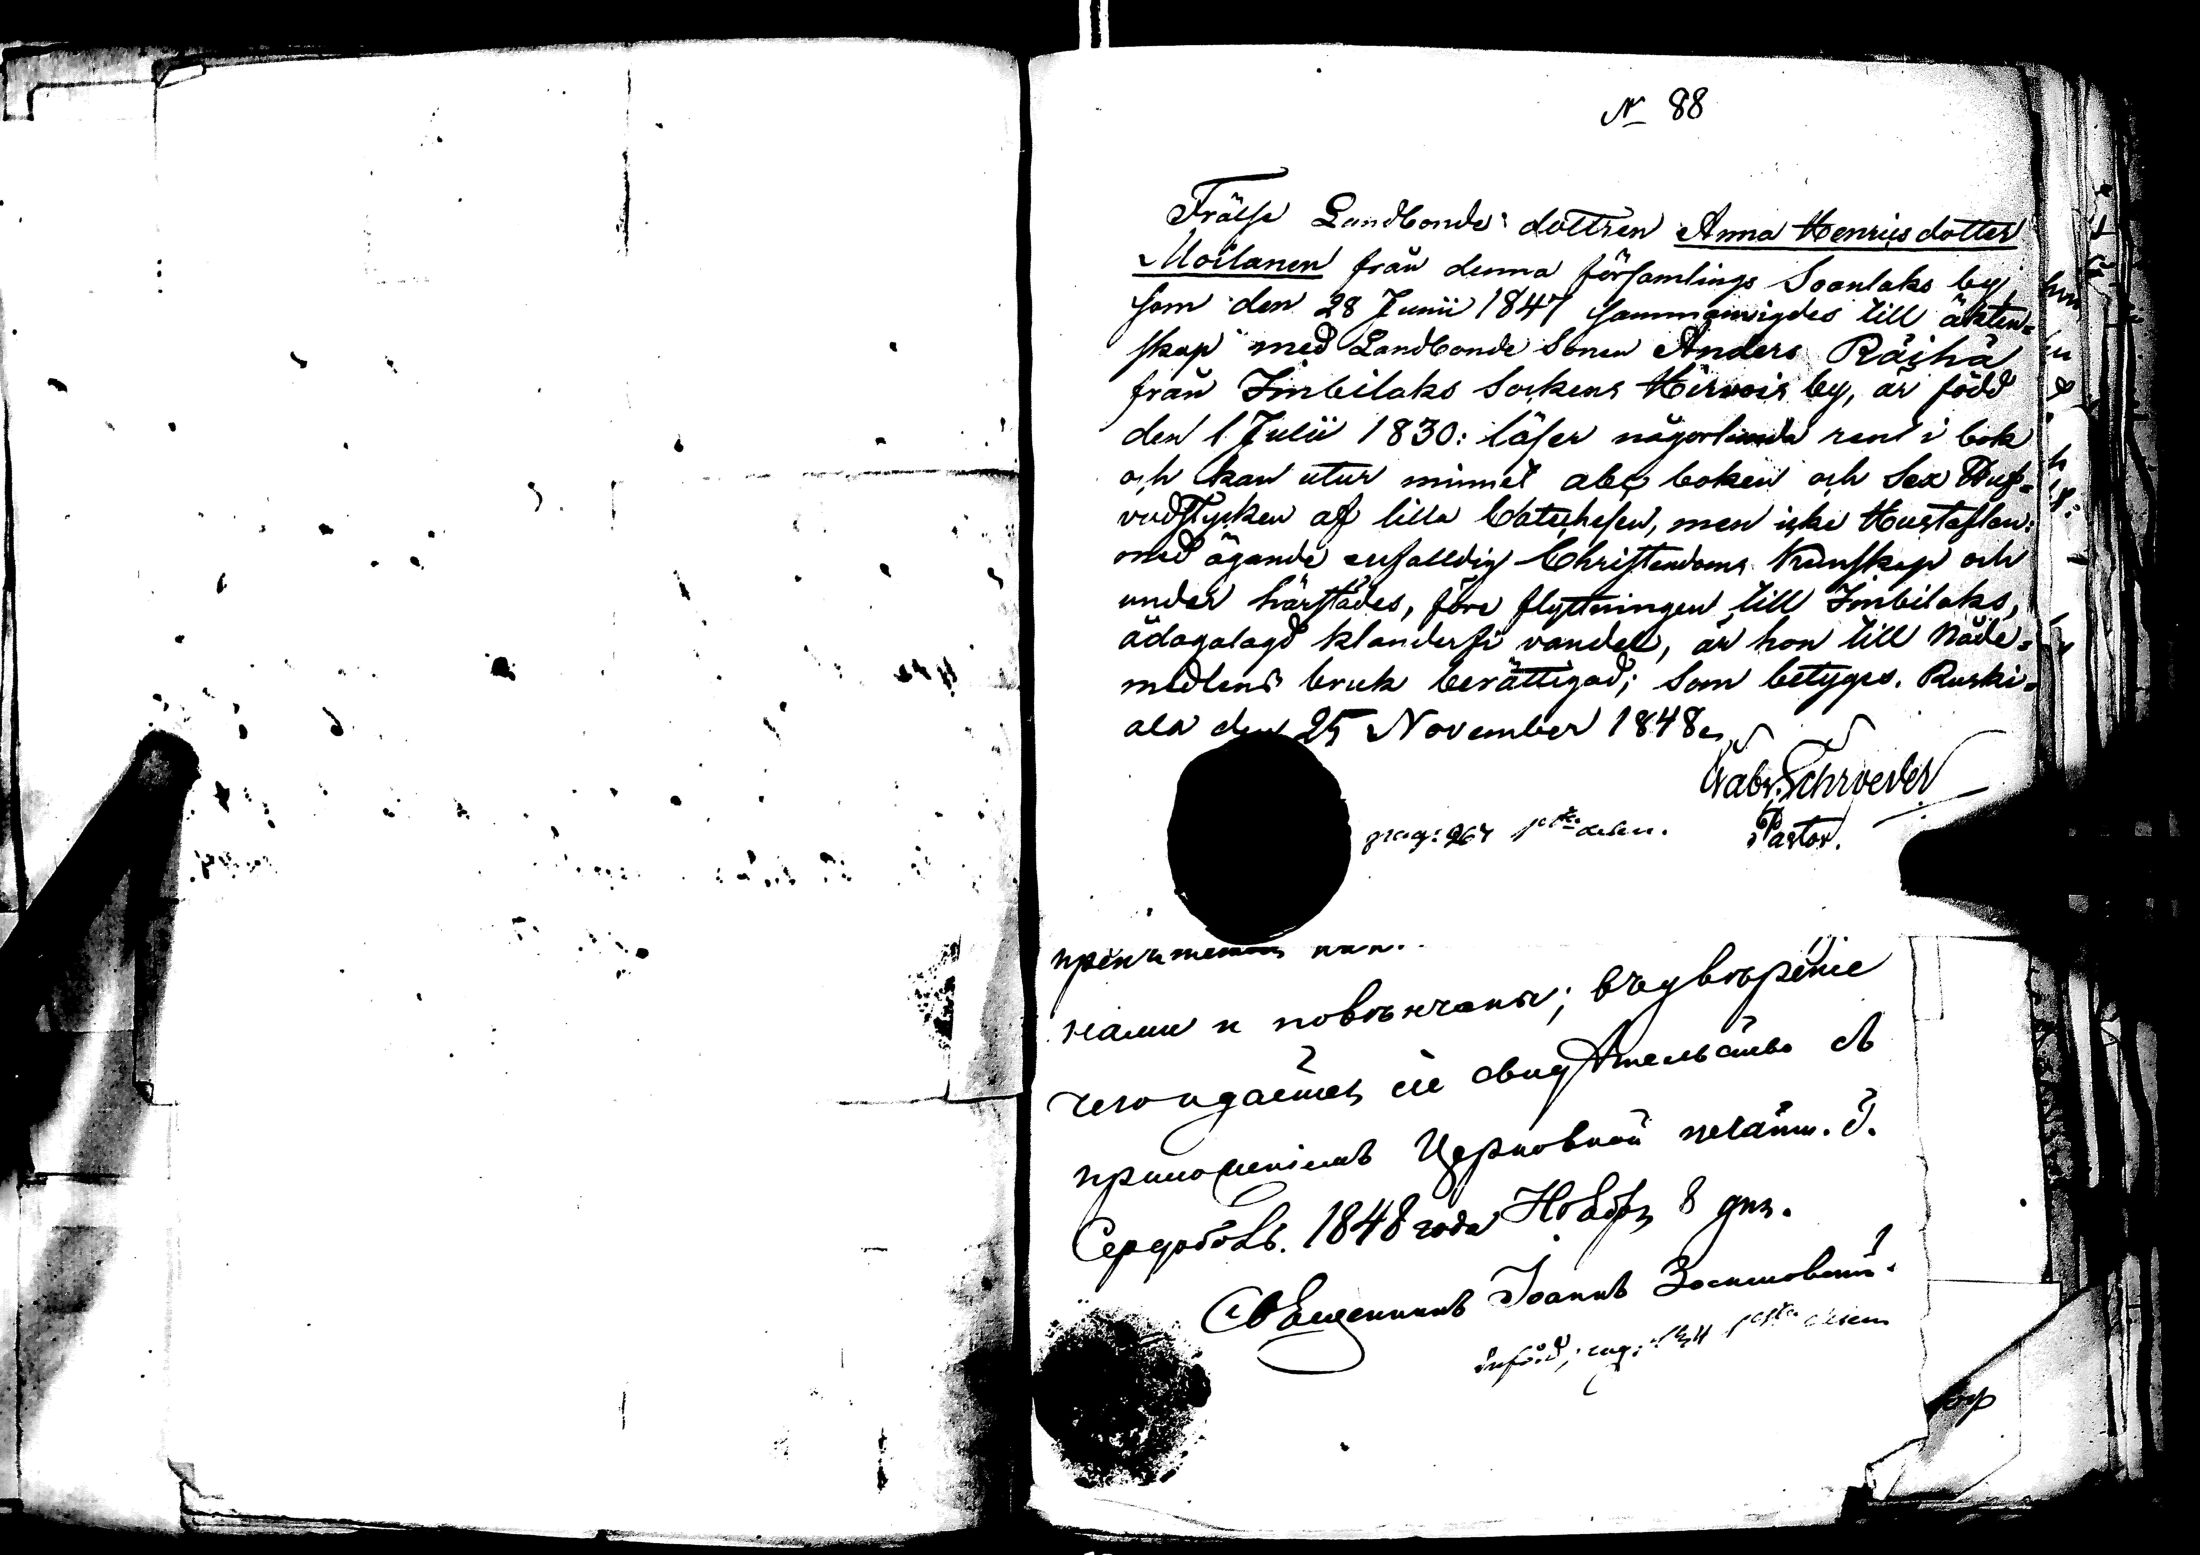 N 88
Frälse Landbonde dottren Anna Henricsdotter
Moilanen från denna församlings Soanlaks by,
som den 28 Junii 1847 sammanvigdes till äkten=
skap med Landbonde Sonen Anders Räihä
från Imbilaks Sockens Hirvois by, är född
den 1 Julii 1830: läser någorlunda rent i bok
och kan utur minnet abc boken och Sex Huf=
vudstycken af lilla Catechesen, men icke Hustaflan:
med ägande enfalldig Christendoms Kunskap och
under härstädes, före flyttningen till Imbilaks,
ådagalagd klanderfri vandel, är hon till Nåde=
medlens bruk berättigad; Som betygas. Ruski=
ala den 25 November 1848.
Gabr. Schroeder
Pastor.
pag: 267 1sta delen.
нами и повѣнчаны; въ увѣреніе
чего и дается сіе свидѣтельство съ
приложеніемъ Церковной печати. Г.
Сердоболь. 1848 года Ноября 8 дня.
Священникъ Іоаннъ
införd, pag: 1sta delen